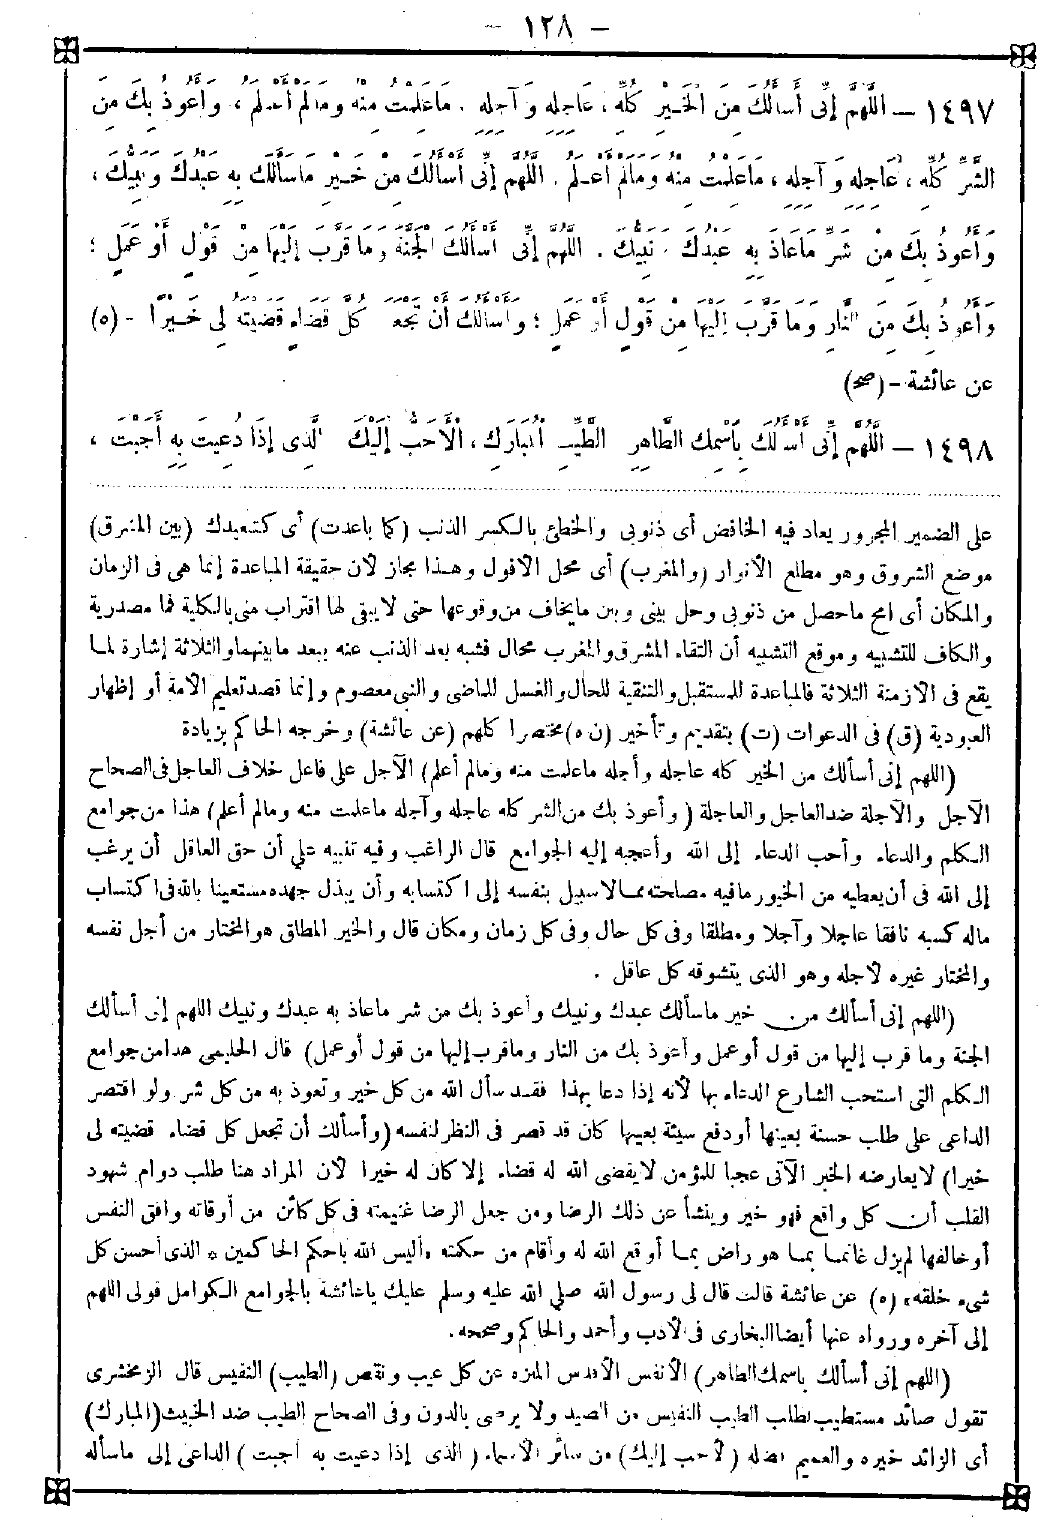 – ١٢٨ –
١٤٩٧ – اللَّهُمَّ إِنِّى أَسْأَلُكَ مِنَ الْخَيْرِ كُلِّهِ ، عَاجِلِهِ وَآجِلِهِ . مَاعَلِمْتُ مِنْهُ وَمَالَمْ أَعْلَمُ ، وَأَعُوذُ بِكَ مِنَ
الشَّرِّ كُلِّهِ ، عَاجِلِهِ وَآجِلِهِ ، مَاعَلِمْتُ مِنْهُ وَمَالَمْ أَعْلَمُ . اللَّهُمَّ إِنِّى أَسْأَلُكَ مِنْ خَيْرِ مَاسَأَلَكَ بِهِ عَبْدُكَ وَنَبِيُّكَ ،
وَأَعُوذُ بِكَ مِنْ شَرِّ مَاعَاذَ بِهِ عَبْدُكَ وَنَبِيُّكَ . اللَّهُمَّ إِنِّى أَسْأَلُكَ الْجَنَّةَ وَمَا قَرَّبَ إِلَيْهَا مِنْ قَوْلٍ أَوْ عَمَلٍ ؛
وَأَعُوذُ بِكَ مِنَ النَّارِ وَمَا قَرَّبَ إِلَيْهَا مِنْ قَوْلٍ أَوْ عَمَلٍ ؛ وَأَسْأَلُكَ أَنْ تَجْعَلَ كُلَّ قَضَاءٍ قَضَيْتَهُ لِى خَيْرًا - (ه)
عن عائشة - (صح)
١٤٩٨ – اللَّهُمَّ إِنِّى أَسْأَلُكَ بِاسْمِكَ الطَّاهِرِ الطَّيِّبِ الْمُبَارَكِ ، الْأَحَبِّ إِلَيْكَ الَّذِى إِذَا دُعِيتَ بِهِ أَجَبْتَ ،
على الضمير المجرور يعاد فيه الخافض أى ذنوبى والخطائ بالكسر الذنب (كما باعدت) أى كتبعيدك (بين المشرق)
موضع الشروق وهو مطلع الأنوار (والمغرب) أى محل الافول وهذا مجاز لأن حقيقة المباعدة إنما هى فى الزمان
والمكان أى امح ماحصل من ذنوبى وحل بينى وبين مايخاف من وقوعها حتى لا يبقى لها اقتراب منى بالكلية فما مصدرية
والكاف للتشبيه وموقع التشبيه أن التقاء المشرق والمغرب محال فشبه بعد الذنب عنه ببعد مابينهما والثلاثة إشارة لما
يقع فى الازمنة الثلاثة فالمباعدة للمستقبل والتنقية للحال والغسل للماضى والنبى معصوم وإنما قصد تعليم الأمة أو إظهار
العبودية (ق) فى الدعوات (ت) بتقديم وتأخير (ن ه) مختصرا كلهم (عن عائشة) وخرجه الحاكم بزيادة
(اللهم إنى أسألك من الخير كله عاجله وأجله ماعلمت منه ومالم أعلم) الآجل على فاعل خلاف العاجل فى الصحاح
الآجل والآجلة ضد العاجل والعاجلة (وأعوذ بك من الشر كله عاجله وآجله ماعلمت منه ومالم أعلم) هذا من جوامع
الكلم والدعاء وأحب الدعاء إلى الله وأعجبه إليه الجوامع قال الراغب وفيه تنبيه على أن حق العاقل أن يرغب
إلى الله فى أن يعطيه من الخيور مافيه مصلحته مما لاسبيل بنفسه إلى اكتسابه وأن يبذل جهده مستعينا بالله فى اكتساب
ماله كسبه نافعا عاجلا وآجلا ومطلقا وفى كل حال وفى كل زمان ومكان قال والخير المطلق هو المختار من أجل نفسه
والمختار غيره لأجله وهو الذى يتشوقه كل عاقل .
(اللهم إنى أسألك من خير ماسألك عبدك ونبيك وأعوذ بك من شر ماعاذ به عبدك ونبيك اللهم إنى أسألك
الجنة وما قرب إليها من قول أو عمل وأعوذ بك من النار وماقرب إليها من قول أو عمل) قال الحليمى هذا من جوامع
الكلم التى استحب الشارع الدعاء بها لأنه إذا دعا بهذا فقد سأل الله من كل خير وتعوذ به من كل شر ولو اقتصر
الداعى على طلب حسنة بعينها أو دفع سيئة بعينها كان قد قصر فى النظر لنفسه (وأسألك أن تجعل كل قضاء قضيته لى
خيرا) لايعارضه الخبر الآتى عجبا للمؤمن لايقضى الله له قضاء إلا كان له خيرا لأن المراد هنا طلب دوام شهود
القلب أن كل واقع فهو خير وينشأ عن ذلك الرضا ومن جعل الرضا غنيمته فى كل كائن من أوقاته وافق النفس
أو خالفها لم يزل غانما بما هو راض بما أوقع الله له وأقام من حكمته «أليس الله بأحكم الحاكمين * الذى أحسن كل
شىء خلقه» (ه) عن عائشة قالت قال لى رسول الله صلى الله عليه وسلم عليك ياعائشة بالجوامع الكوامل قولى اللهم
إلى آخره ورواه عنها أيضا البخارى فى الأدب وأحمد والحاكم وصححه.
(اللهم إنى أسألك باسمك الطاهر) الأنفس الأقدس المنزه عن كل عيب ونقص (الطيب) النفيس قال الزمخشرى
تقول صائد مستطيب يطلب الطيب النفيس من الصيد ولا يرضى بالدون وفى الصحاح الطيب ضد الخبيث (المبارك)
أى الزائد خيره والعميم فضله (لأحب إليك) من سائر الأسماء (الذى إذا دعيت به أجبت) الداعى إلى ماسأله